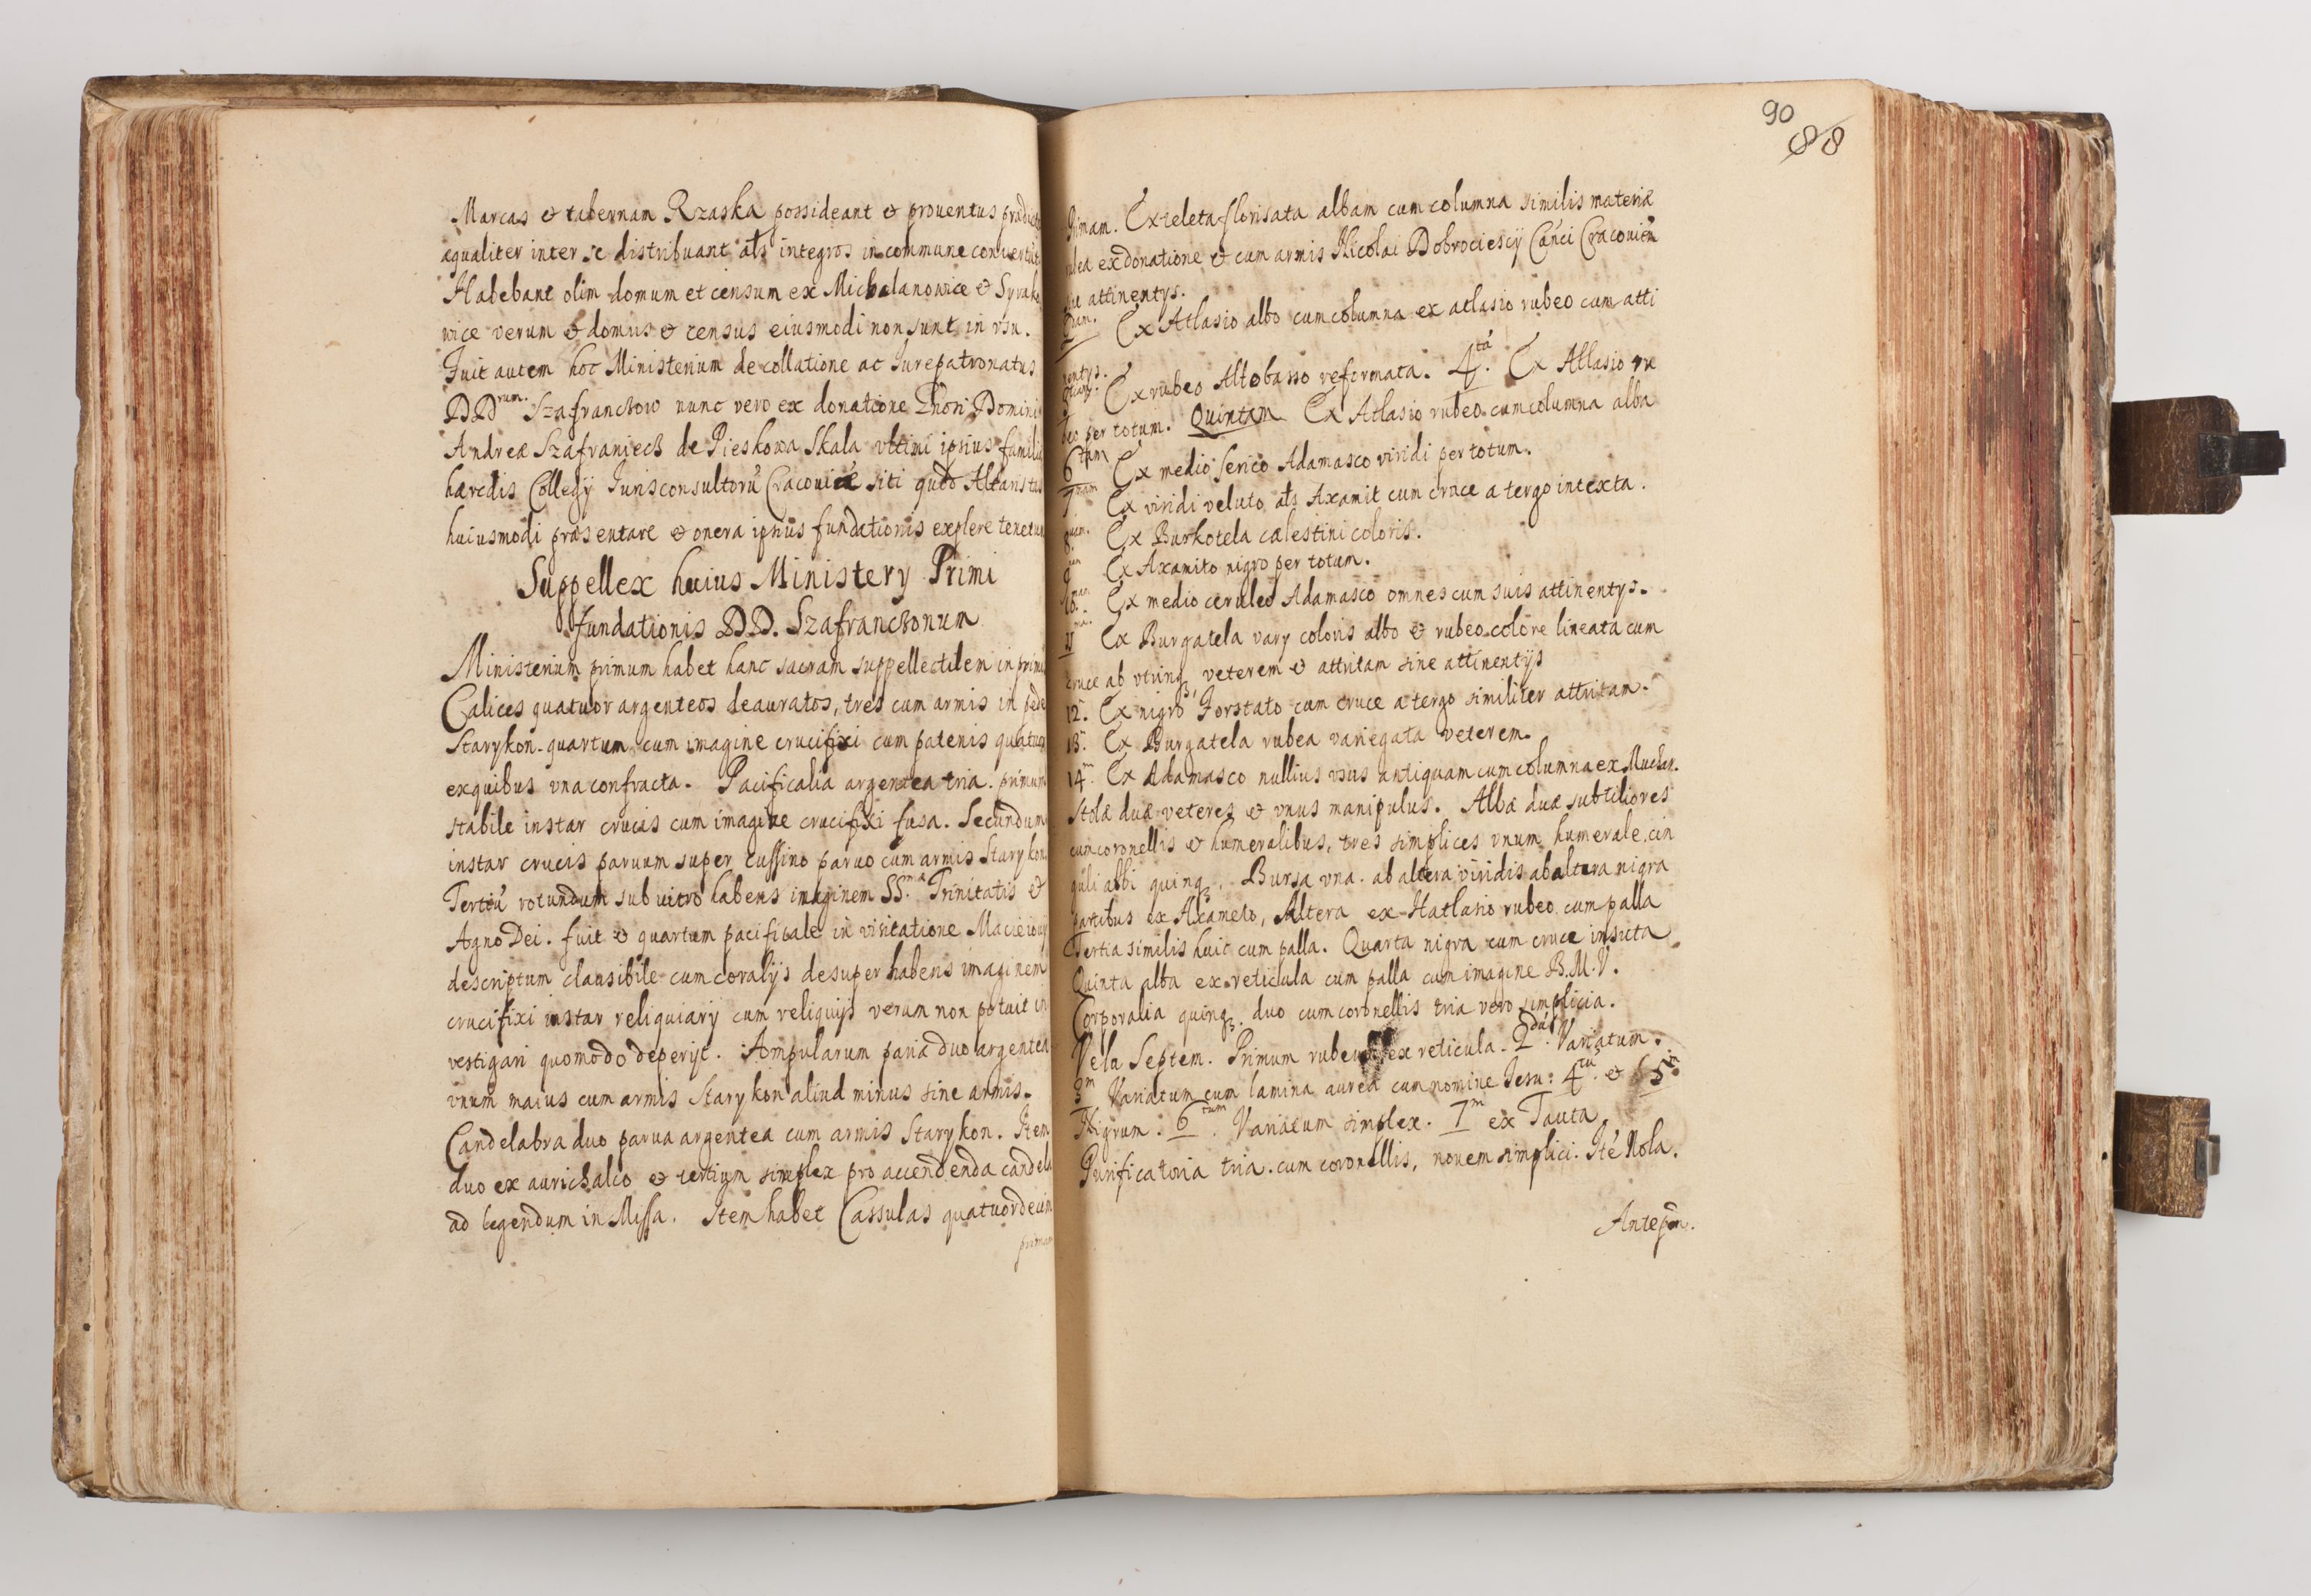 Marcas et tabernam Rzaska possideant et prouentus prædict
æqualiter inter se distribuant als integros in commune conuert
Habebant olim domum et censum ex Michalanowice et Syrako
wice verum et domus et census eiusmodi non sunt in vsu.
Fuit autem hoc Ministerium de collatione ac Iurepatronatus
DDrum. Szafranckow nunc vero ex donatione Domini
Andreæ Szafraniech de Pieskowa Skala vltimi ipsius familiæ
hæredis Collegij Iurisconsultorū Cracouiæ siti quod Altarista
huiusmodi præsentare et onera ipsius fundationis explere tenetur
Suppellex huius Ministery Primi
fundationis DD. Szafranckonum
Ministerium primum habet hanc sacram suppellectilem in primis
Calices quatuor argenteos deauratos, tres cum armis in pede
Starykon. quartum cum imagine crucifixi cum patenis quatuor
ex quibus vna confracta. Pacificalia argentea tria. primum
stabile instar crucis cum imagine crucifixi fusa. Secundum
instar crucis paruum super cussino paruo cum armis Starykon
Tertiū rotundum sub vitro habens imaginem SS.mæ Trinitatis et
Agno Dei. fuit et quartum pacificale in visitatione Macieiouij
descriptum clausibile cum coralijs desuper habens imaginem
crucifixi instar reliquiarij cum reliquijs verum non potuit in
vestigari quomodo deperijt. Ampularum paria duo argentea
vnum maius cum armis Starykon aliud minus sine armis.
Candelabra duo parua argentea cum armis Starykon. Item
duo ex aurichalco et tertium simplex pro accendenda candela
ad legendum in Missa. Item habet Cassulas quatuordecim
primam
90
88
Primam. Ex teleta florisata albam cum columna similis materiæ
rubea ex donatione et cum armis Nicolai Dobrociescij Cāńci Cracouień
attinentys.
2dam. Ex Atlasio albo cum columna ex atlasio rubeo cum atti
nentys.
Ex rubeo Altobasso reformata. 4ta. Ex Atlasio ru
beo per totum. Quintam Ex Atlasio rubeo cum columna alba
6tam Ex medio serico Adamasco viridi per totum.
7mam Ex viridi veluto als Axamit cum cruce a tergo intexta.
8uam. Ex Burkotela cælestini coloris.
9 Ex Axamito nigro per totum.
10mam. Ex medio ceruleo Adamasco omnes cum suis attinentys.
11ma. Ex Burgatela vary coloris albo et rubeo colore lineata cum
cruce ab vtrinq3, veterem et attritam sine attinentijs
12. Ex nigro Forstato cum cruce a tergo similiter attritam.
13. Ex Burgatela rubea variegata veterem.
14m. Ex Adamasco nullius vsus antiquam cum columna ex Muchar.
Stolæ duæ veteres et vnus manipulus. Albæ duæ subtiliores
cum coronellis et humeralibus, tres simplices vnum humerale. cin
guli albi quinq3. Bursa vna. ab altera viridis ab altera nigra
partibus ex Axameto, Altera ex Hatlasio rubeo cum palla
Tertia similis huic cum palla. Quarta nigra cum cruce insuta
Quinta alba ex reticula cum palla cum imagine B.M.V.
Corporalia quinq3. duo cum coronellis tria vero simplicia.
Vela Septem. Primum rubeum ex reticula. 2dū. Variatum.
3m Variatum cum lamina aurea cum nomine Iesu: 4tū. et 5m
Nigrum. 6tum. Variatum simplex. 7m ex Tauta.
Purificatoria tria. cum coronellis, nouem simplici. Itē Nola.
Antepen.